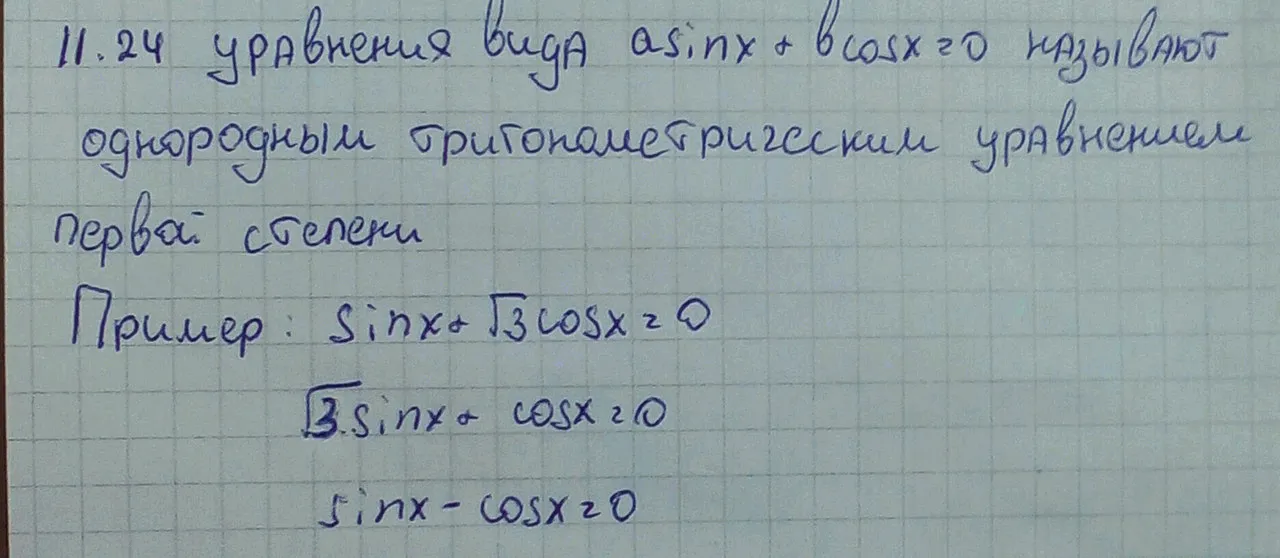 11.24 уравнения вида asinx + bcosx = 0 называют
однородным тригонометрическим уравнением
первой степени
Пример: sinx + √3cosx = 0
√3sinx + cosx = 0
sinx - cosx = 0